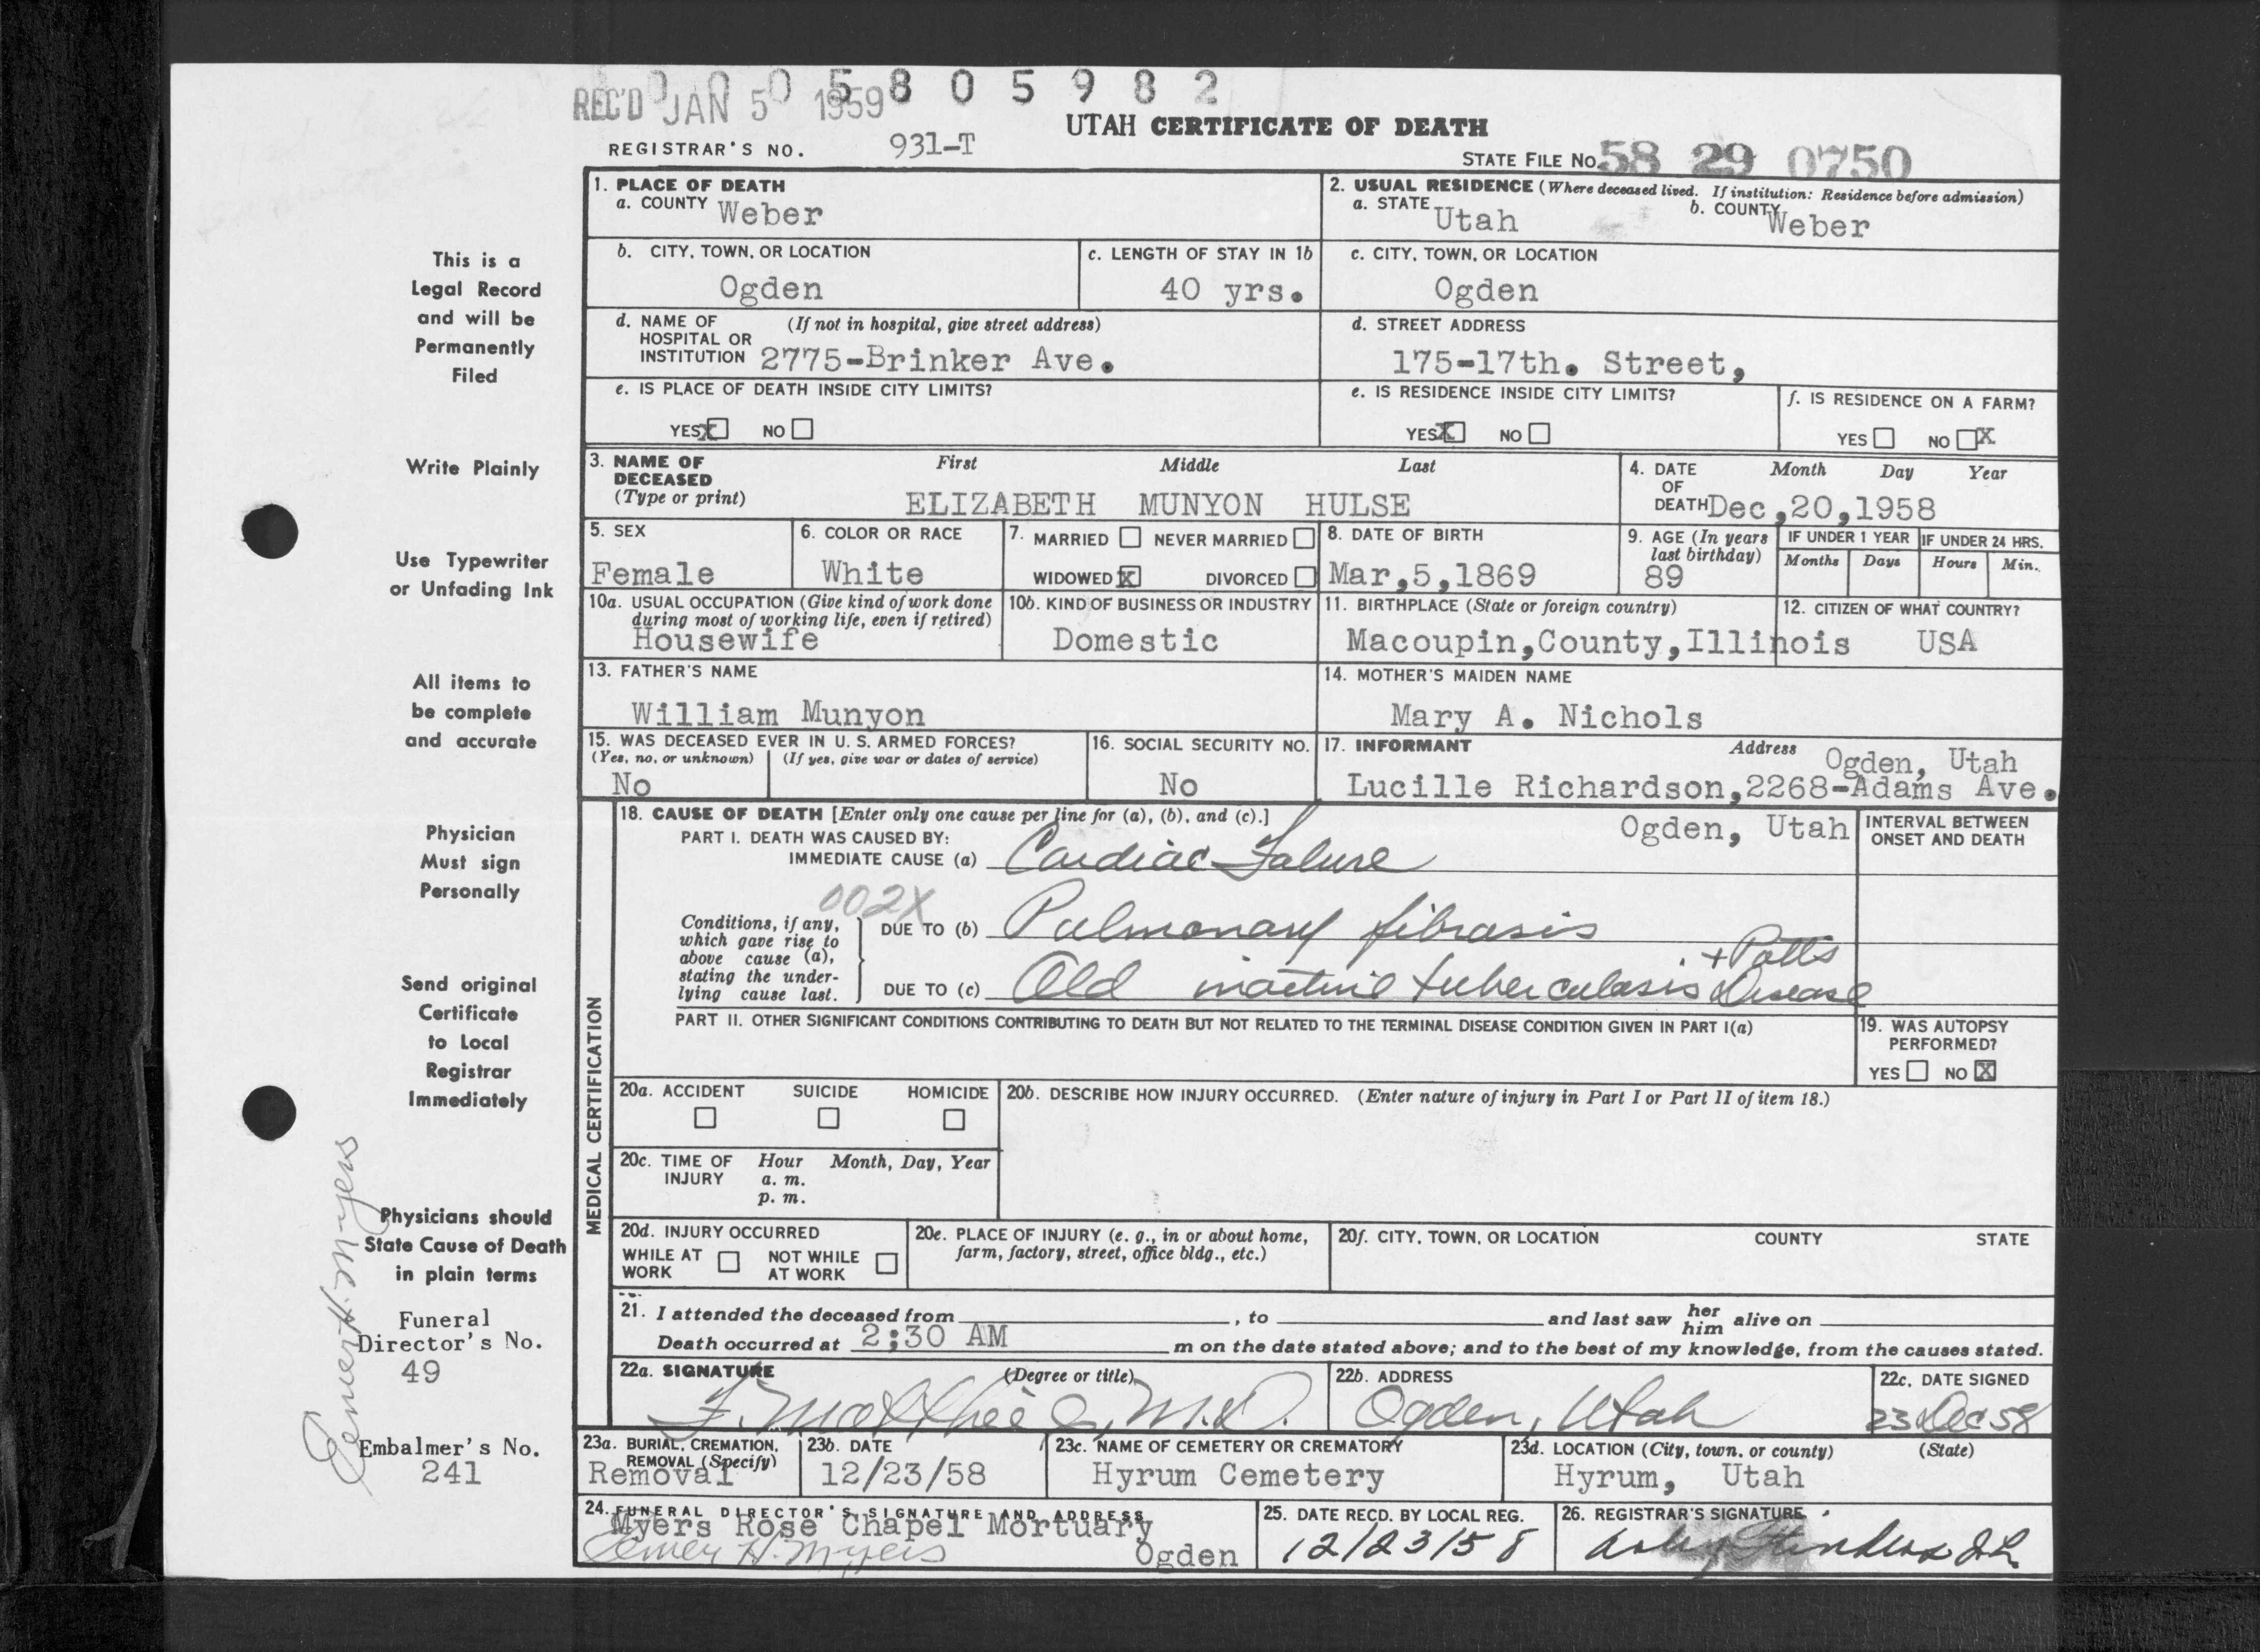 0 0 0 5 8 0 5 9 8 2
REC'D JAN 5 1959
UTAH CERTIFICATE OF DEATH
REGISTRAR'S NO. 931-T
STATE FILE NO. 58 29 0750
1. PLACE OF DEATH
a. COUNTY Weber
2. USUAL RESIDENCE (Where deceased lived. If institution: Residence before admission)
a. STATE Utah b. COUNTY Weber
b. CITY, TOWN, OR LOCATION
Ogden
c. LENGTH OF STAY IN 1b
40 yrs.
c. CITY, TOWN, OR LOCATION
Ogden
d. NAME OF HOSPITAL OR INSTITUTION (If not in hospital, give street address)
2775-Brinker Ave.
d. STREET ADDRESS
175-17th. Street,
e. IS PLACE OF DEATH INSIDE CITY LIMITS?
YES X NO
e. IS RESIDENCE INSIDE CITY LIMITS?
YES X NO
f. IS RESIDENCE ON A FARM?
YES NO X
3. NAME OF DECEASED (Type or print)
First Middle Last
ELIZABETH MUNYON HULSE
4. DATE OF DEATH Month Day Year
Dec,20,1958
5. SEX
Female
6. COLOR OR RACE
White
7. MARRIED NEVER MARRIED
WIDOWED X DIVORCED
8. DATE OF BIRTH
Mar,5,1869
9. AGE (In years last birthday)
89
IF UNDER 1 YEAR
Months Days
IF UNDER 24 HRS.
Hours Min.
10a. USUAL OCCUPATION (Give kind of work done during most of working life, even if retired)
Housewife
10b. KIND OF BUSINESS OR INDUSTRY
Domestic
11. BIRTHPLACE (State or foreign country)
Macoupin,County,Illinois
12. CITIZEN OF WHAT COUNTRY?
USA
13. FATHER'S NAME
William Munyon
14. MOTHER'S MAIDEN NAME
Mary A. Nichols
15. WAS DECEASED EVER IN U. S. ARMED FORCES?
(Yes, no, or unknown) (If yes, give war or dates of service)
No
16. SOCIAL SECURITY NO.
No
17. INFORMANT Address
Ogden, Utah
Lucille Richardson,2268-Adams Ave.
Ogden, Utah
18. CAUSE OF DEATH [Enter only one cause per line for (a), (b), and (c).]
PART I. DEATH WAS CAUSED BY:
IMMEDIATE CAUSE (a) Cardiac Falure
INTERVAL BETWEEN ONSET AND DEATH
002X
Conditions, if any, which gave rise to above cause (a), stating the underlying cause last.
DUE TO (b) Pulmonary fibrosis
DUE TO (c) Old inactive tuberculosis + Potts Disease
PART II. OTHER SIGNIFICANT CONDITIONS CONTRIBUTING TO DEATH BUT NOT RELATED TO THE TERMINAL DISEASE CONDITION GIVEN IN PART I(a)
19. WAS AUTOPSY PERFORMED?
YES NO X
20a. ACCIDENT SUICIDE HOMICIDE
20b. DESCRIBE HOW INJURY OCCURRED. (Enter nature of injury in Part I or Part II of item 18.)
20c. TIME OF INJURY Hour Month, Day, Year
a. m.
p. m.
20d. INJURY OCCURRED
WHILE AT WORK NOT WHILE AT WORK
20e. PLACE OF INJURY (e. g., in or about home, farm, factory, street, office bldg., etc.)
20f. CITY, TOWN, OR LOCATION COUNTY STATE
21. I attended the deceased from , to and last saw her him alive on
Death occurred at 2;30 AM m on the date stated above; and to the best of my knowledge, from the causes stated.
22a. SIGNATURE (Degree or title)
M.D.
22b. ADDRESS
Ogden, Utah
22c. DATE SIGNED
23 Dec 58
23a. BURIAL, CREMATION, REMOVAL (Specify)
Removal
23b. DATE
12/23/58
23c. NAME OF CEMETERY OR CREMATORY
Hyrum Cemetery
23d. LOCATION (City, town, or county) (State)
Hyrum, Utah
24. FUNERAL DIRECTOR'S SIGNATURE AND ADDRESS
Myers Rose Chapel Mortuary
Elmer H. Myers Ogden
25. DATE RECD. BY LOCAL REG.
12/23/58
26. REGISTRAR'S SIGNATURE
MEDICAL CERTIFICATION
This is a
Legal Record
and will be
Permanently
Filed
Write Plainly
Use Typewriter
or Unfading Ink
All items to
be complete
and accurate
Physician
Must sign
Personally
Send original
Certificate
to Local
Registrar
Immediately
Physicians should
State Cause of Death
in plain terms
Funeral
Director's No.
49
Embalmer's No.
241
Elmer H. Myers